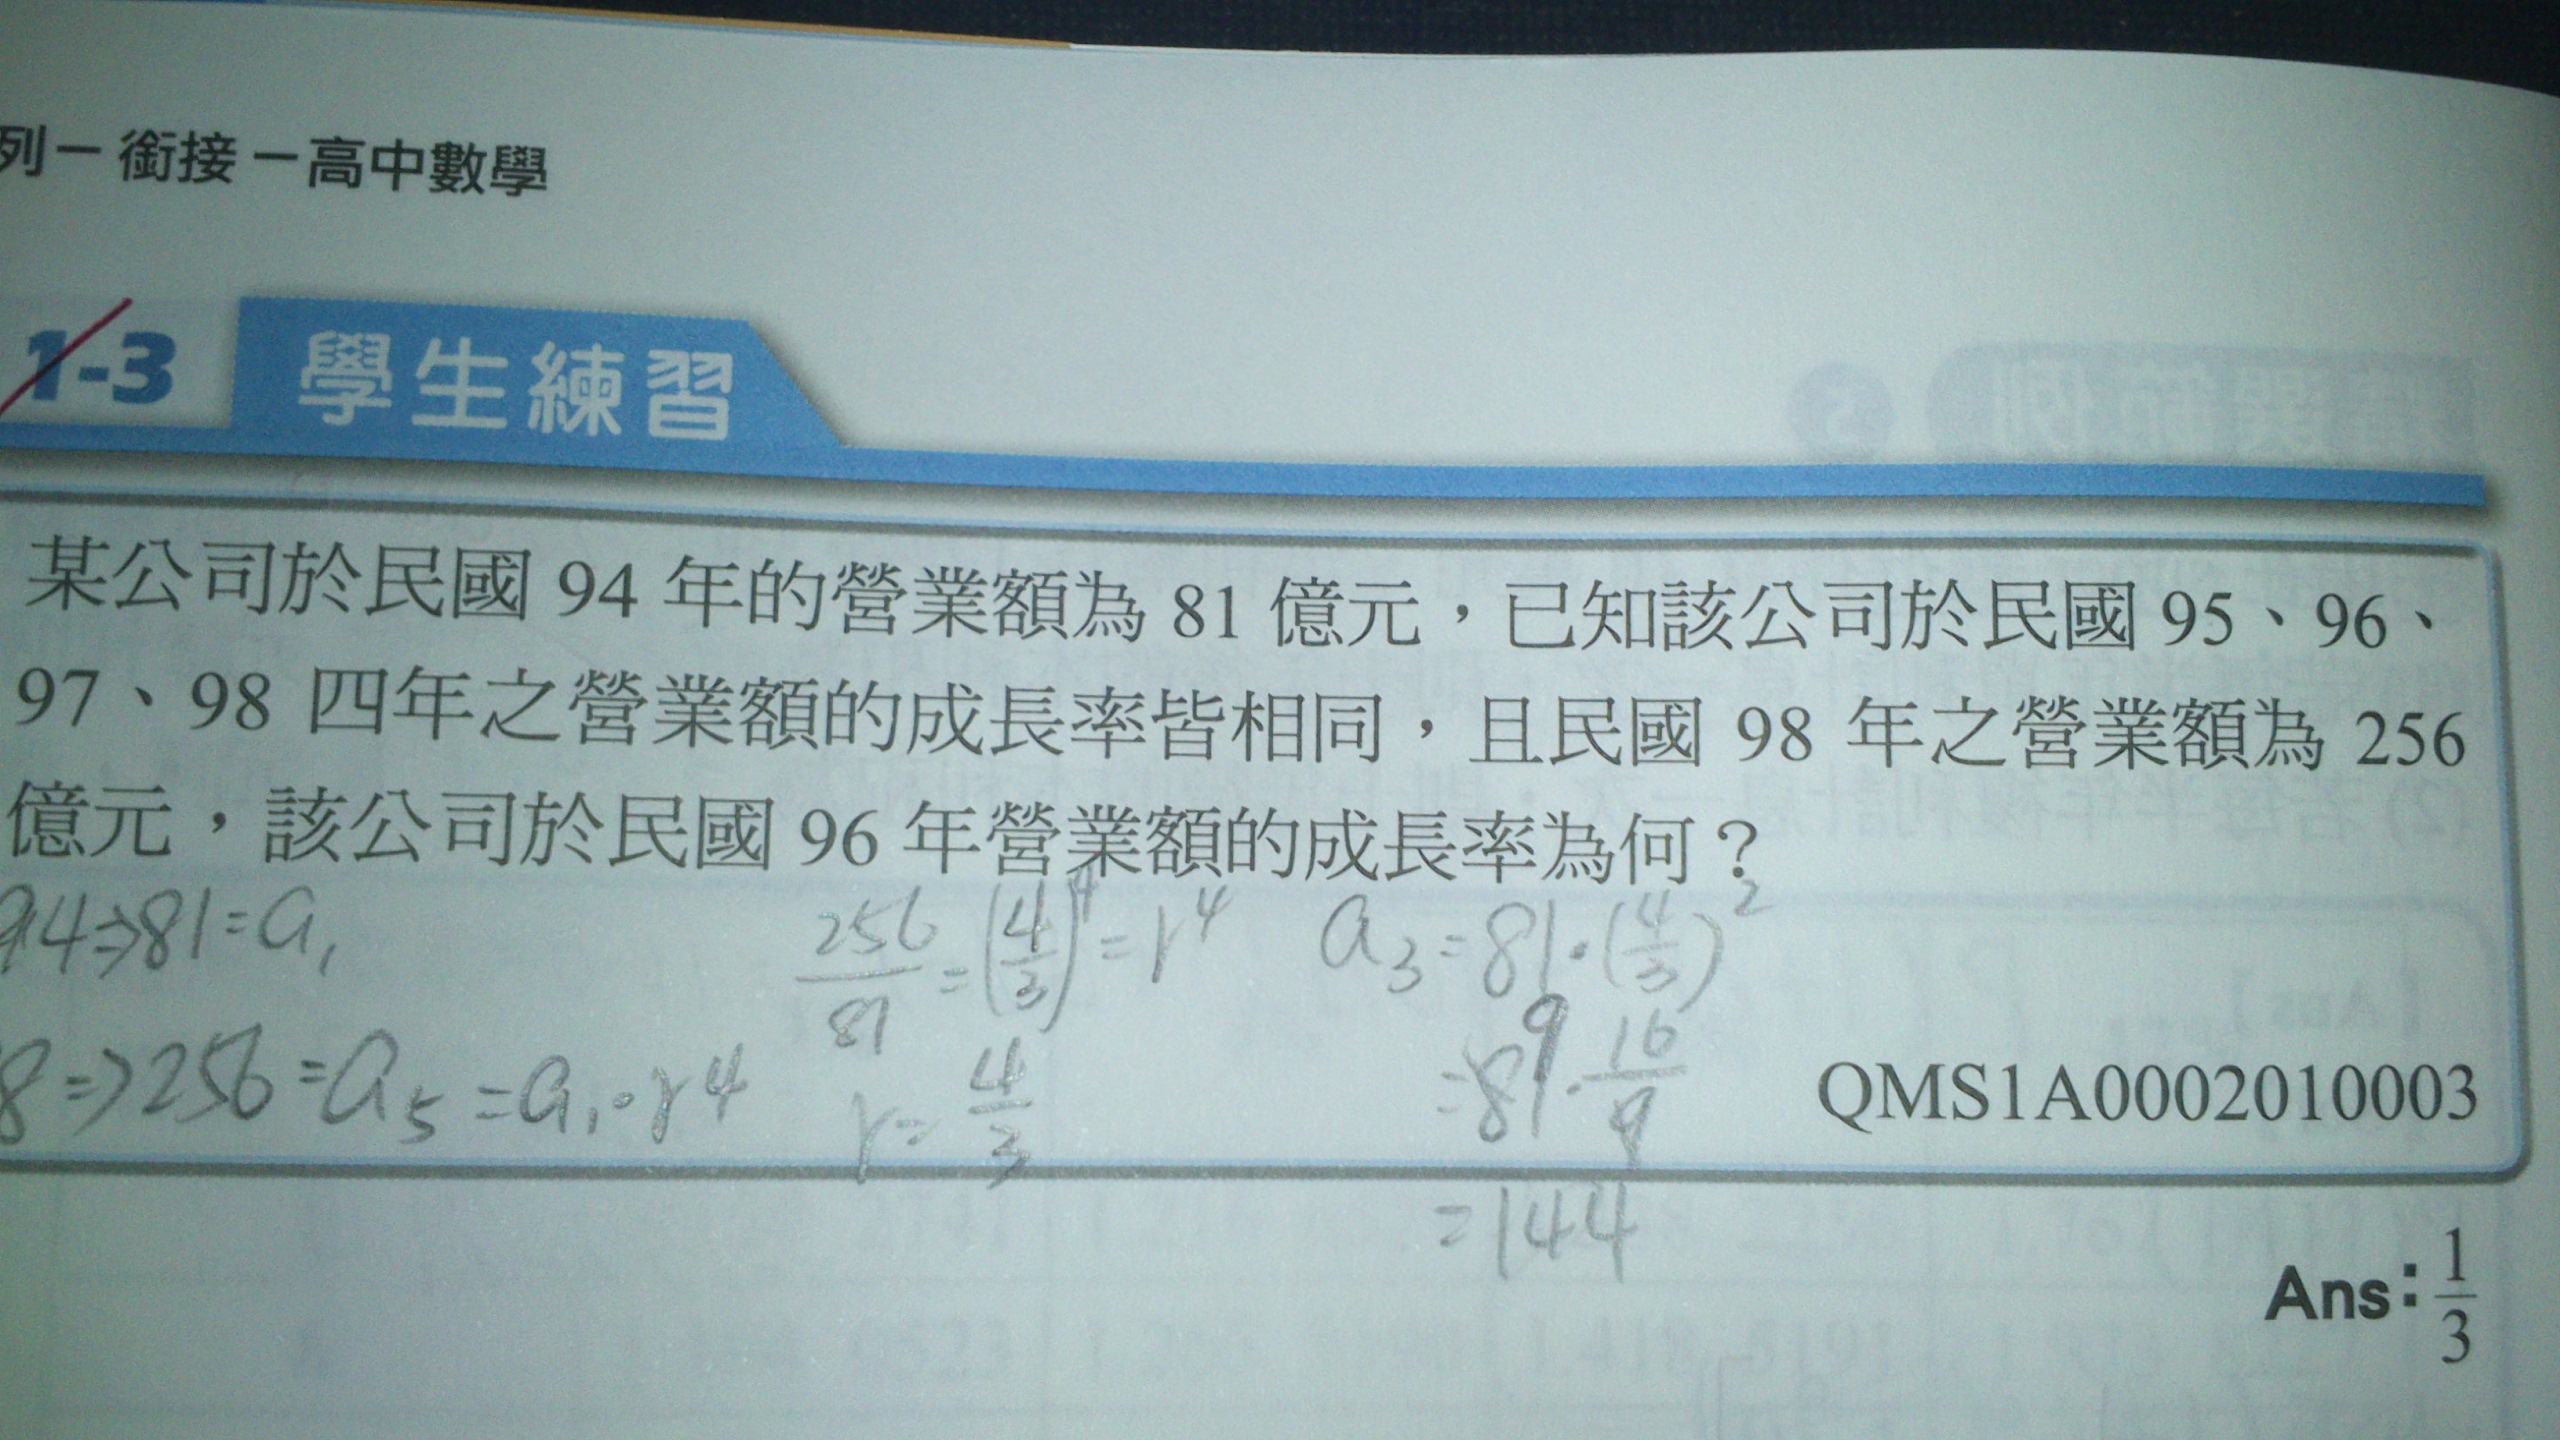 列－銜接－高中數學
1-3 學生練習
某公司於民國 94 年的營業額為 81 億元，已知該公司於民國 95、96、
97、98 四年之營業額的成長率皆相同，且民國 98 年之營業額為 256
億元，該公司於民國 96 年營業額的成長率為何？
94⇒81=a₁
8⇒256=a₅=a₁·r⁴
256/81=(4/3)⁴=r⁴
r=4/3
a₃=81·(4/3)²
=81·16/9
9
=144
QMS1A0002010003
Ans：1/3